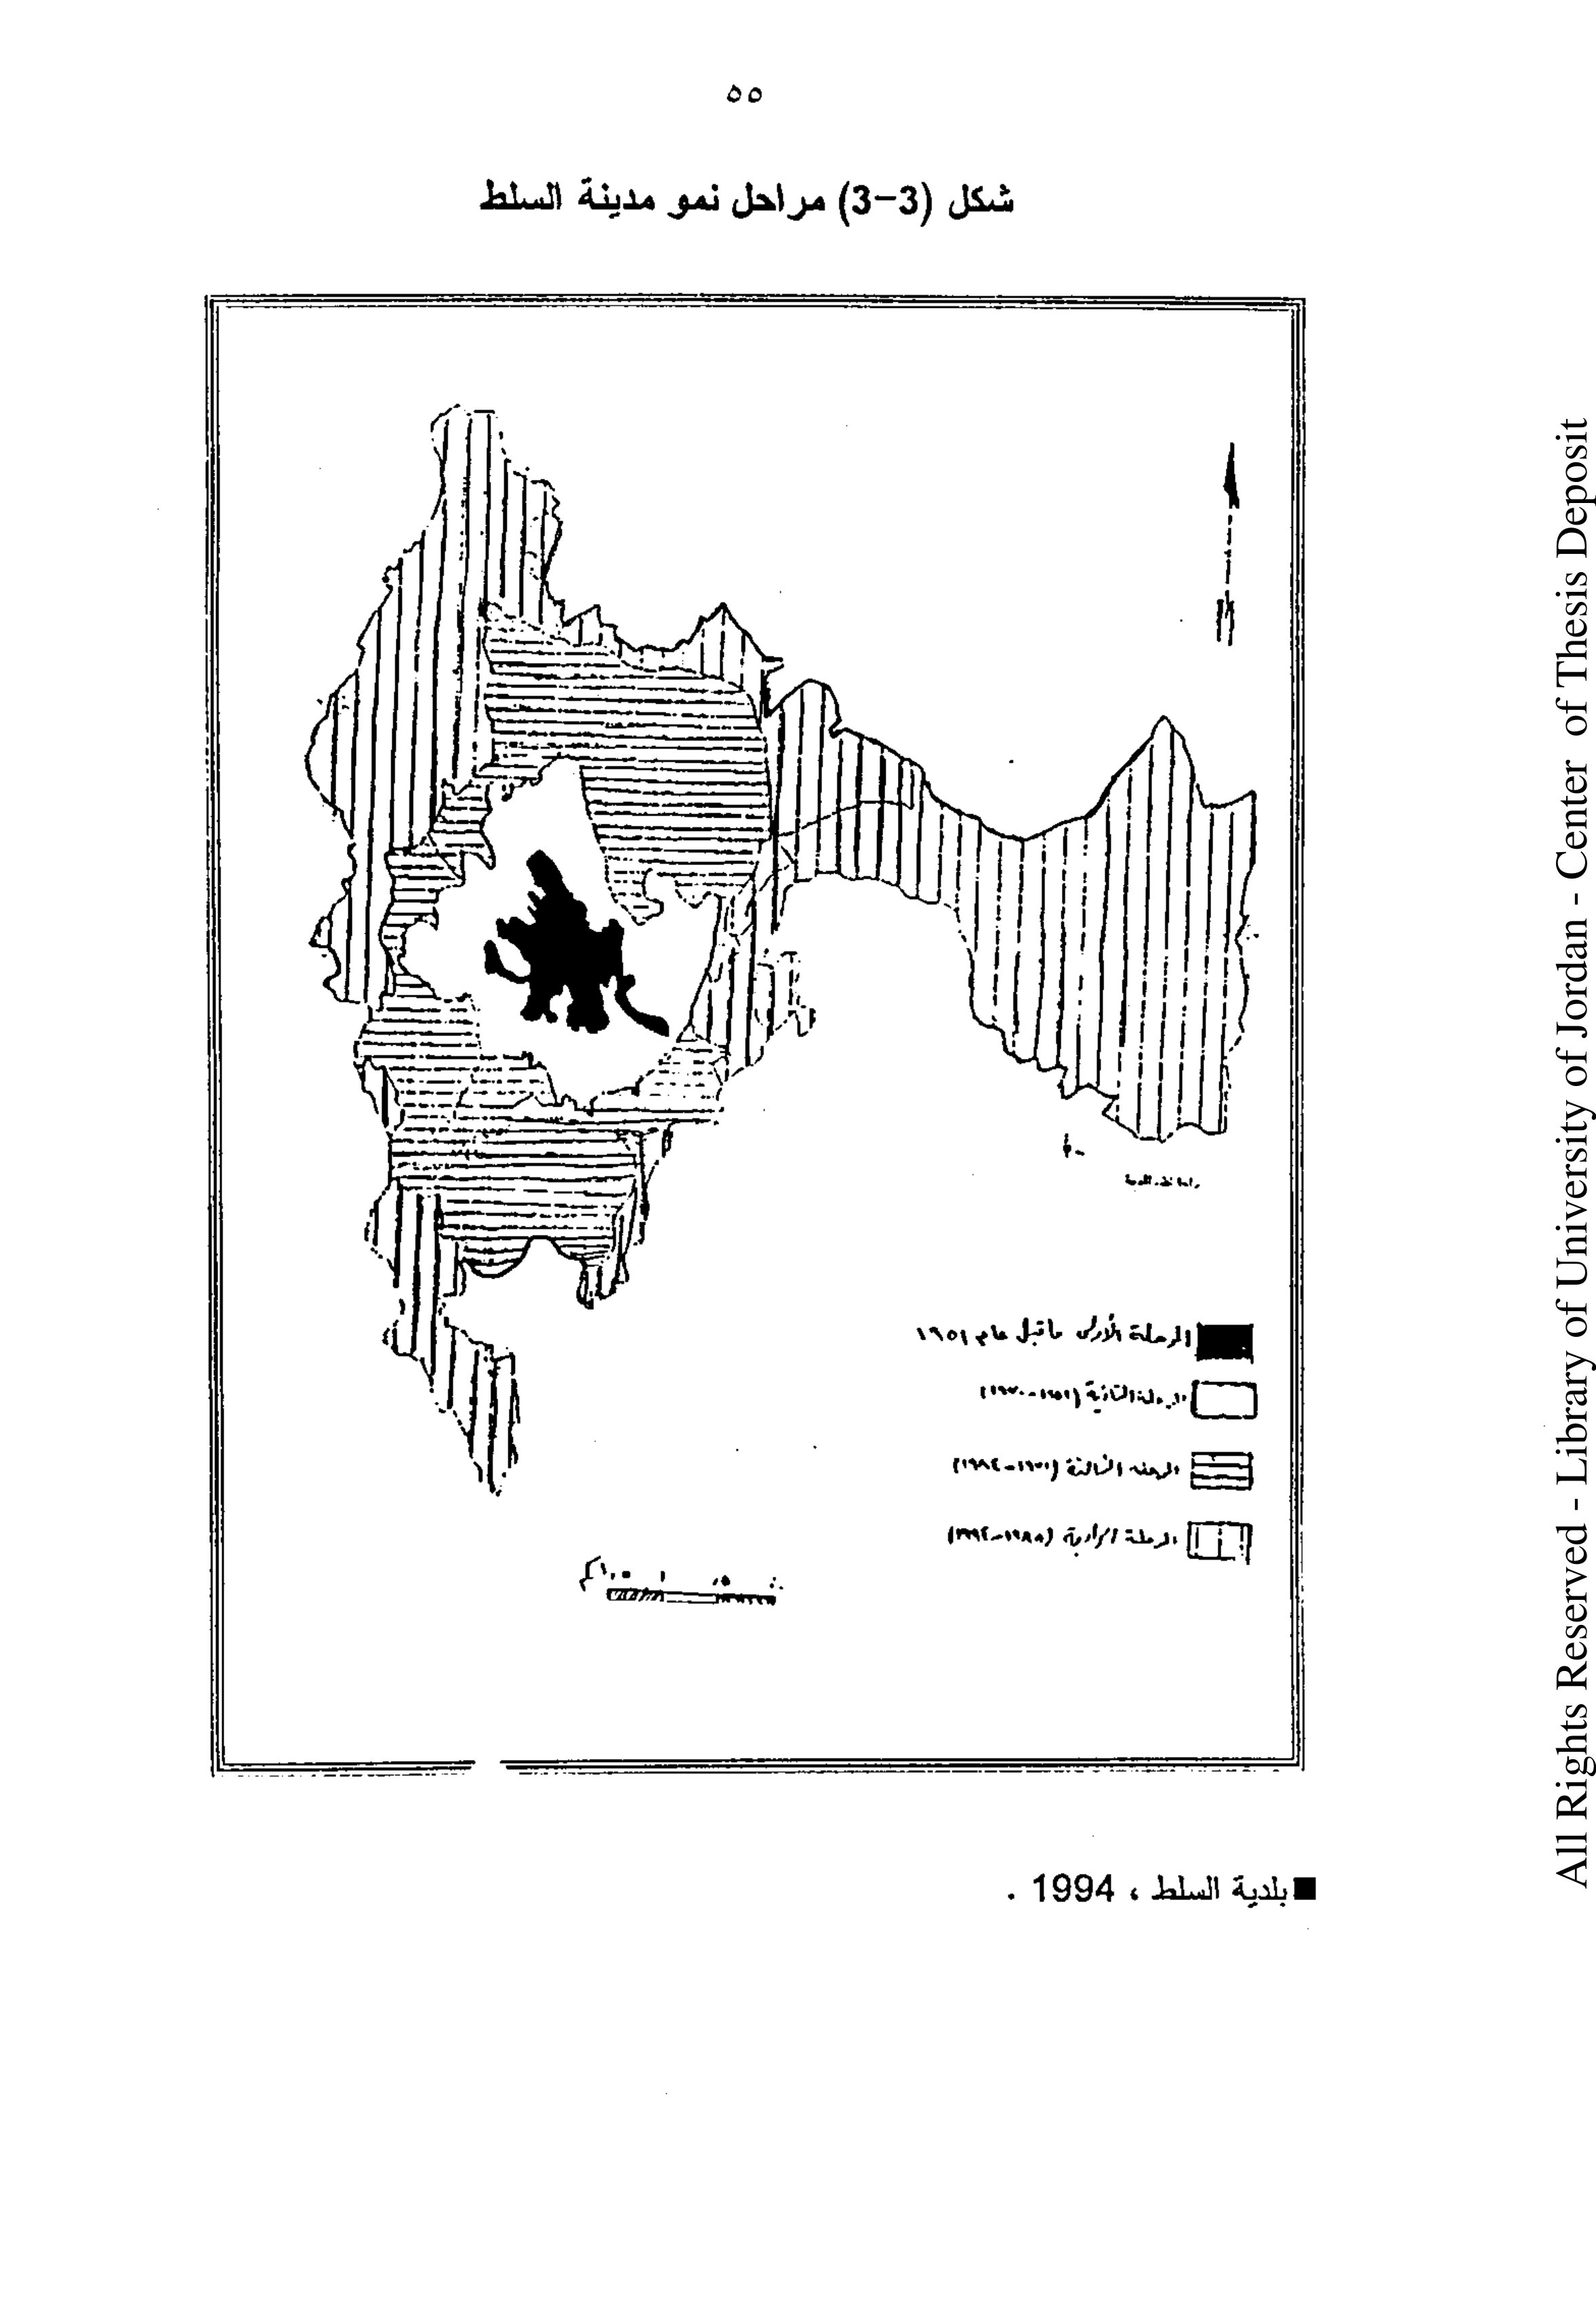 ٥٥
شكل (3-3) مراحل نمو مدينة السلط
المرحلة الأولى ماقبل عام ١٩٥١
المرحلة الثانية
المرحلة الثالثة
المرحلة الرابعة (١٩٨٨-١٩٩٤)
بلدية السلط ، 1994 .
All Rights Reserved - Library of University of Jordan - Center of Thesis Deposit